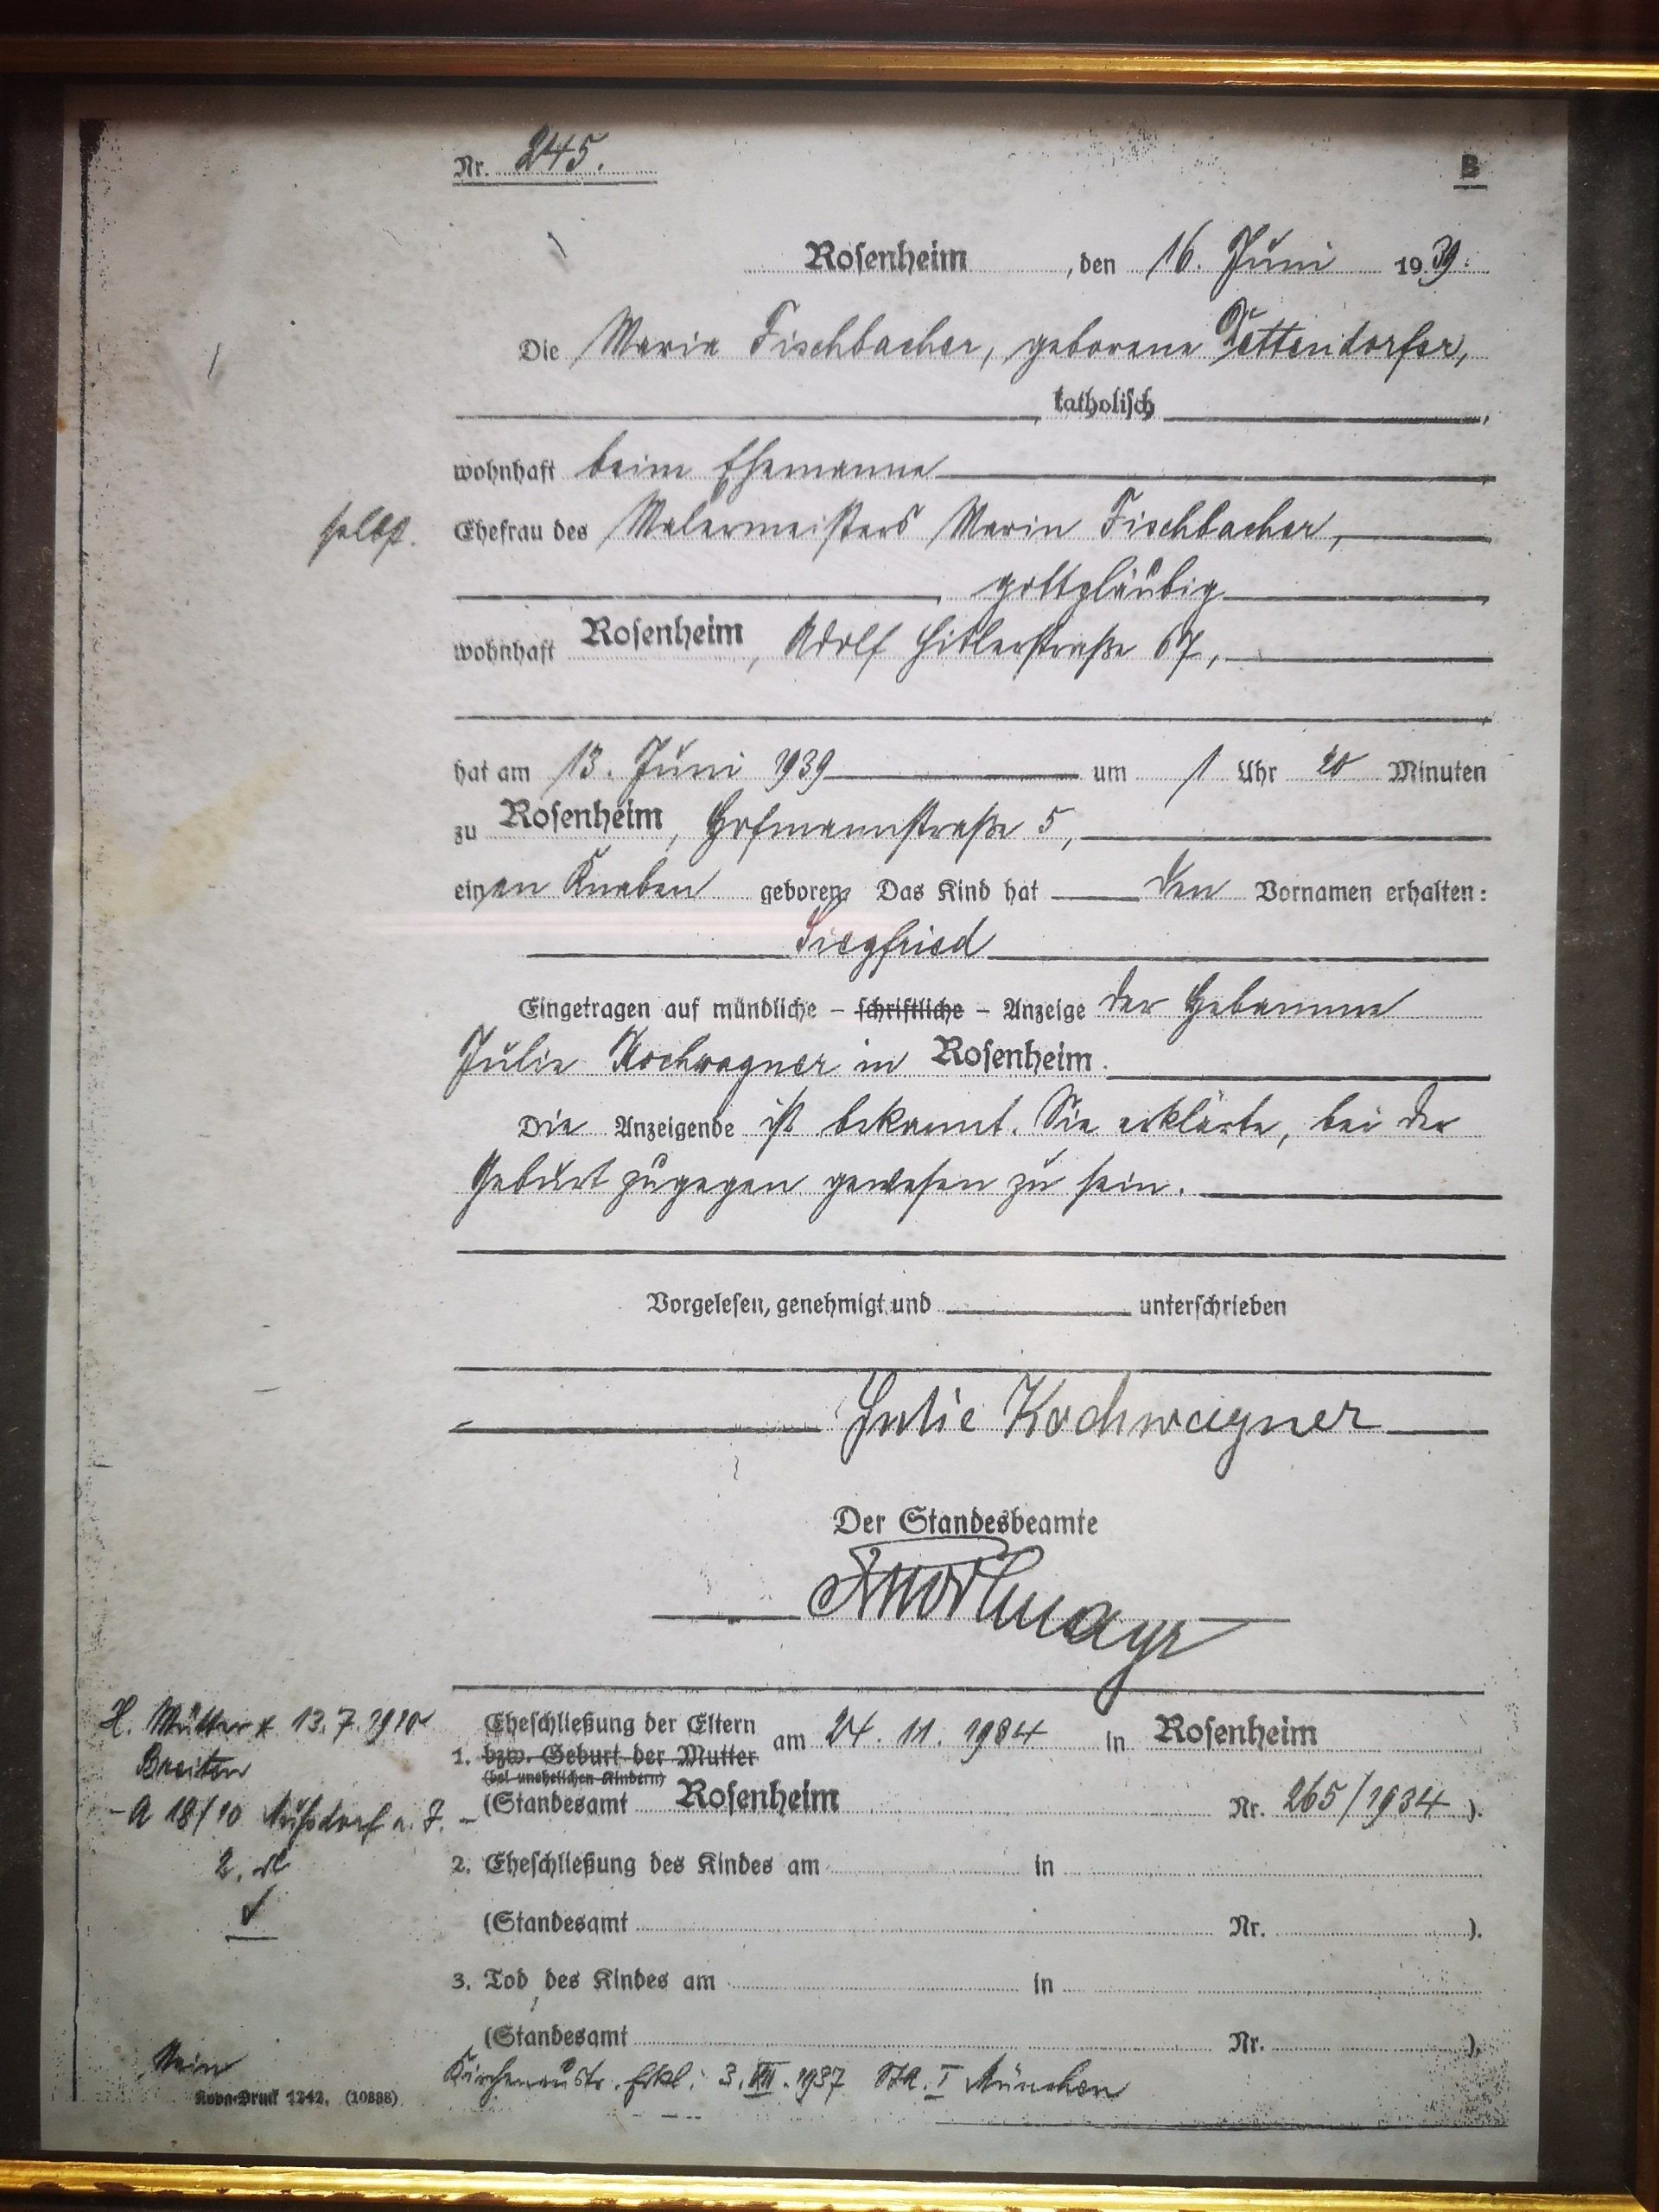 Nr. 245.
B
Rosenheim, den 16. Juni 1939.
Die Maria Fischbacher, geborene Dettendorfer,
katholisch,
wohnhaft beim Ehemanne
selbst.
Ehefrau des Malermeisters Marin Fischbacher,
, gottgläubig
wohnhaft Rosenheim, Adolf Hitlerstraße 67,
hat am 13. Juni 1939 um 1 Uhr 20 Minuten
zu Rosenheim, Hofmannstraße 5,
einen Knaben geboren. Das Kind hat den Vornamen erhalten:
Siegfried
Eingetragen auf mündliche – schriftliche – Anzeige der Hebamme
Julie Kochwagner in Rosenheim.
Die Anzeigende ist bekannt. Sie erklärte, bei der
Geburt zugegen gewesen zu sein.
Vorgelesen, genehmigt und unterschrieben
Julie Kochwagner
Der Standesbeamte
H. Mutter * 13.7.1910
Breiten
- A 18/10 Nußdorf a. I. -
1. Eheschließung der Eltern
bzw. Geburt der Mutter
(bei unehelichen Kindern)
am 24. 11. 1934 in Rosenheim
(Standesamt Rosenheim Nr. 265/1934).
2. Eheschließung des Kindes am in
(Standesamt Nr. ).
3. Tod des Kindes am in
(Standesamt Nr. ).
Kirchenaustr. Erkl: 3. 1937 StA. I München
Druck 1242. (10888)